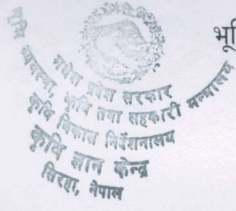 भूमि
मधेश प्रदेश सरकार
भूमि व्यवस्था, कृषि तथा सहकारी मन्त्रालय
कृषि विकास निर्देशनालय
कृषि ज्ञान केन्द्र
सिरहा, नेपाल